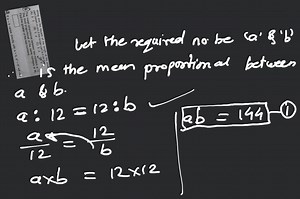 Let the required no be 'a' & 'b'
∴ is the mean proportional between
a & b.
a : 12 = 12 : b ✓
a/12 = 12/b
a×b = 12×12
ab = 144 — ①